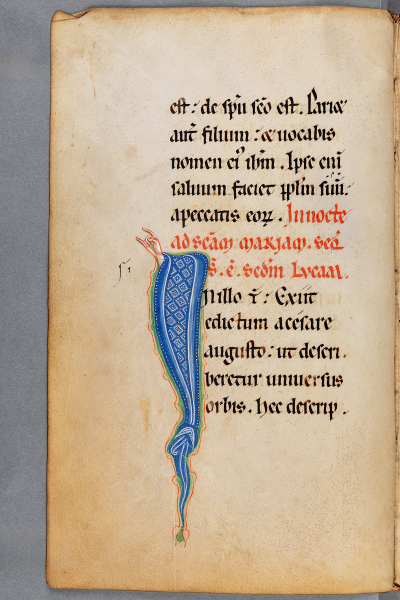 est: de spū sc̄o est. Pariæ
aut̄ filium: & uocabis
nomen ei' ih̄m. Ipse eni
saluum faciet pp̄lm suū.
apeccatis eoꝝ. In nocte
ad sc̄am mariam. seq̄
S. ē. sc̄dm Lucam.
N illo t̄: Exiit
edictum a cesare
augusto: ut descri.
beretur uniuersus
orbis. Hec descrip.